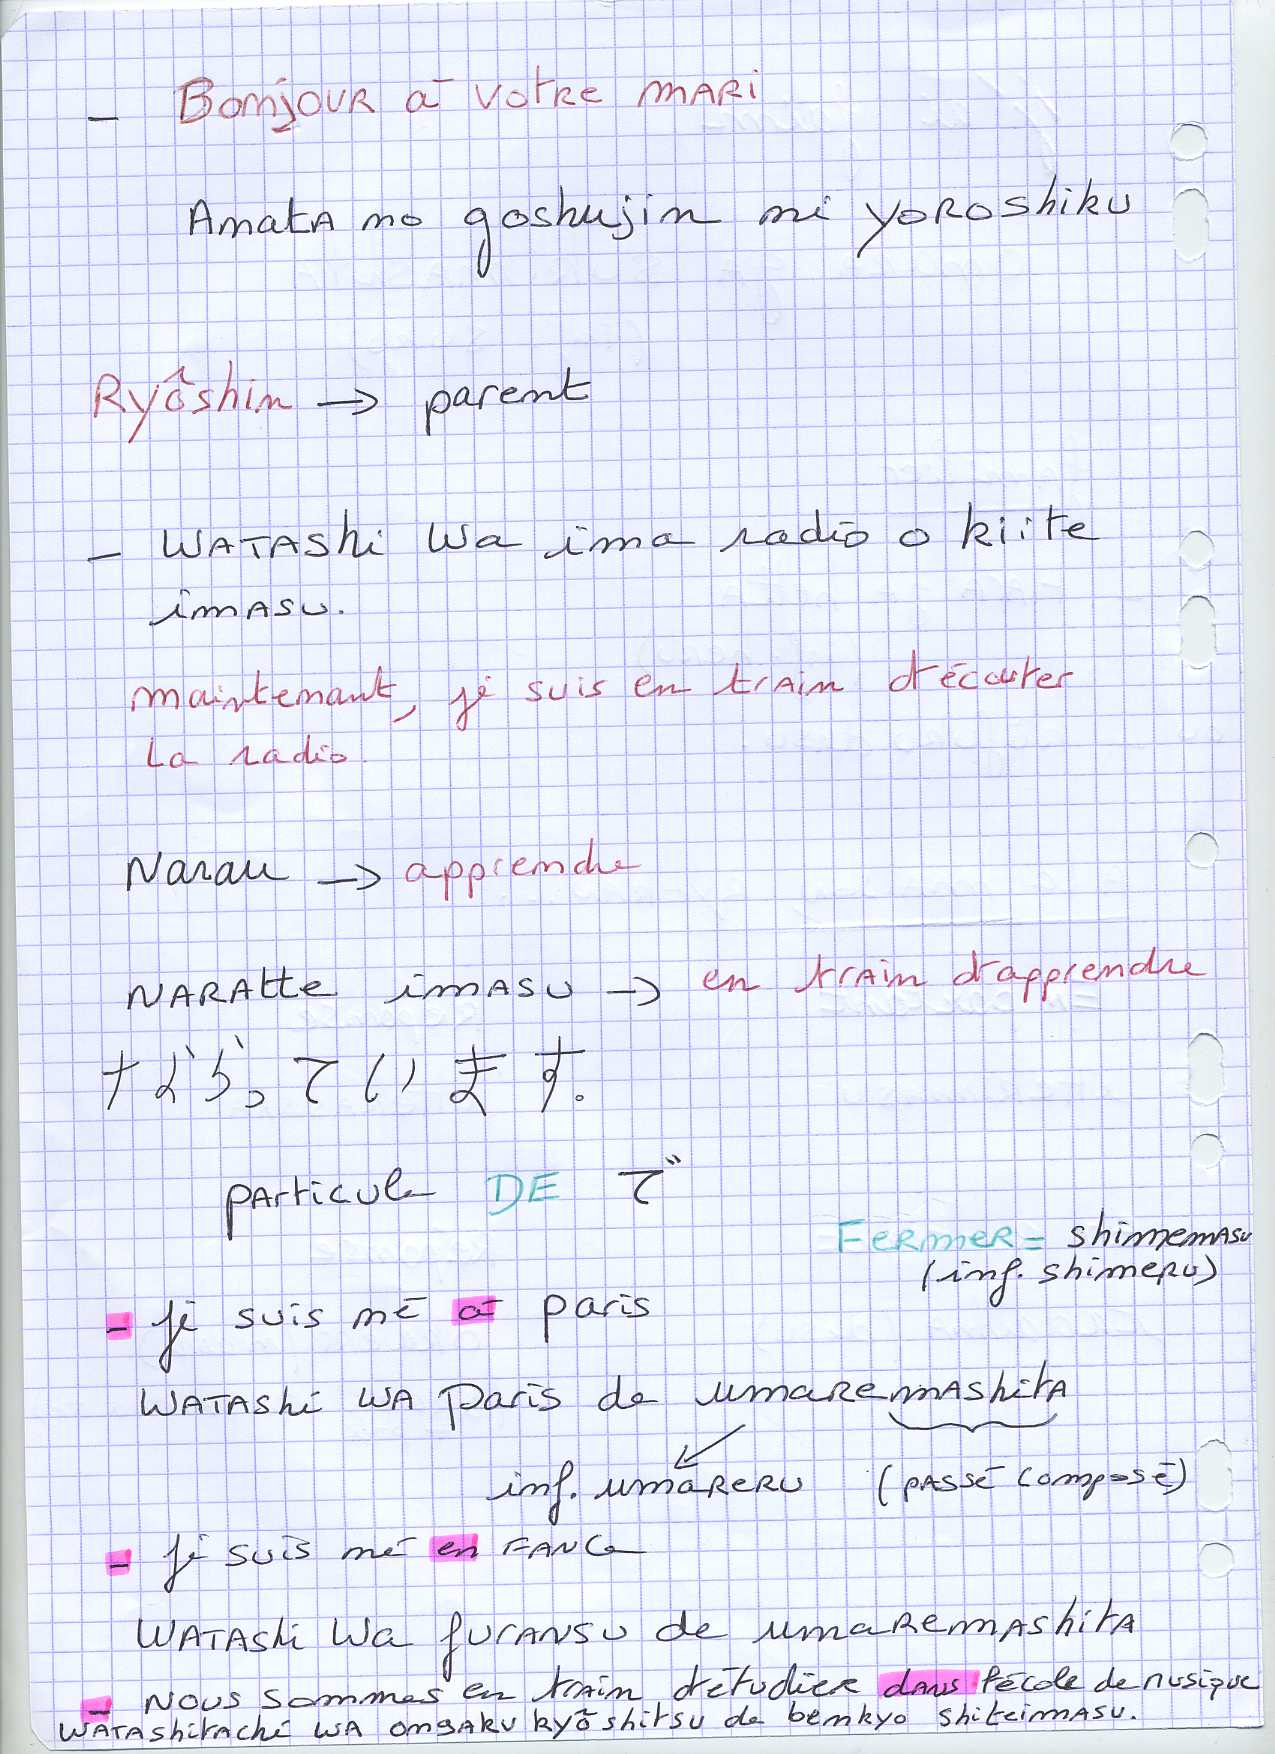 - Bonjour à votre mari
Anata no goshujin ni yoroshiku
Ryôshin → parent
- Watashi wa ima radio o kiite
imasu.
maintenant, je suis en train d'écouter
la radio.
Narau → apprendre
Naratte imasu → en train d'apprendre
ならっています。
particule DE で
Fermer = shimemasu
(inf. shimeru)
- je suis né à paris
Watashi wa paris de umaremashita
inf. umareru (passé composé)
- je suis né en Fance
Watashi wa furansu de umaremashita
- Nous sommes en train d'étudier dans l'école de musique
Watashitachi wa ongaku kyôshitsu de benkyo shiteimasu.